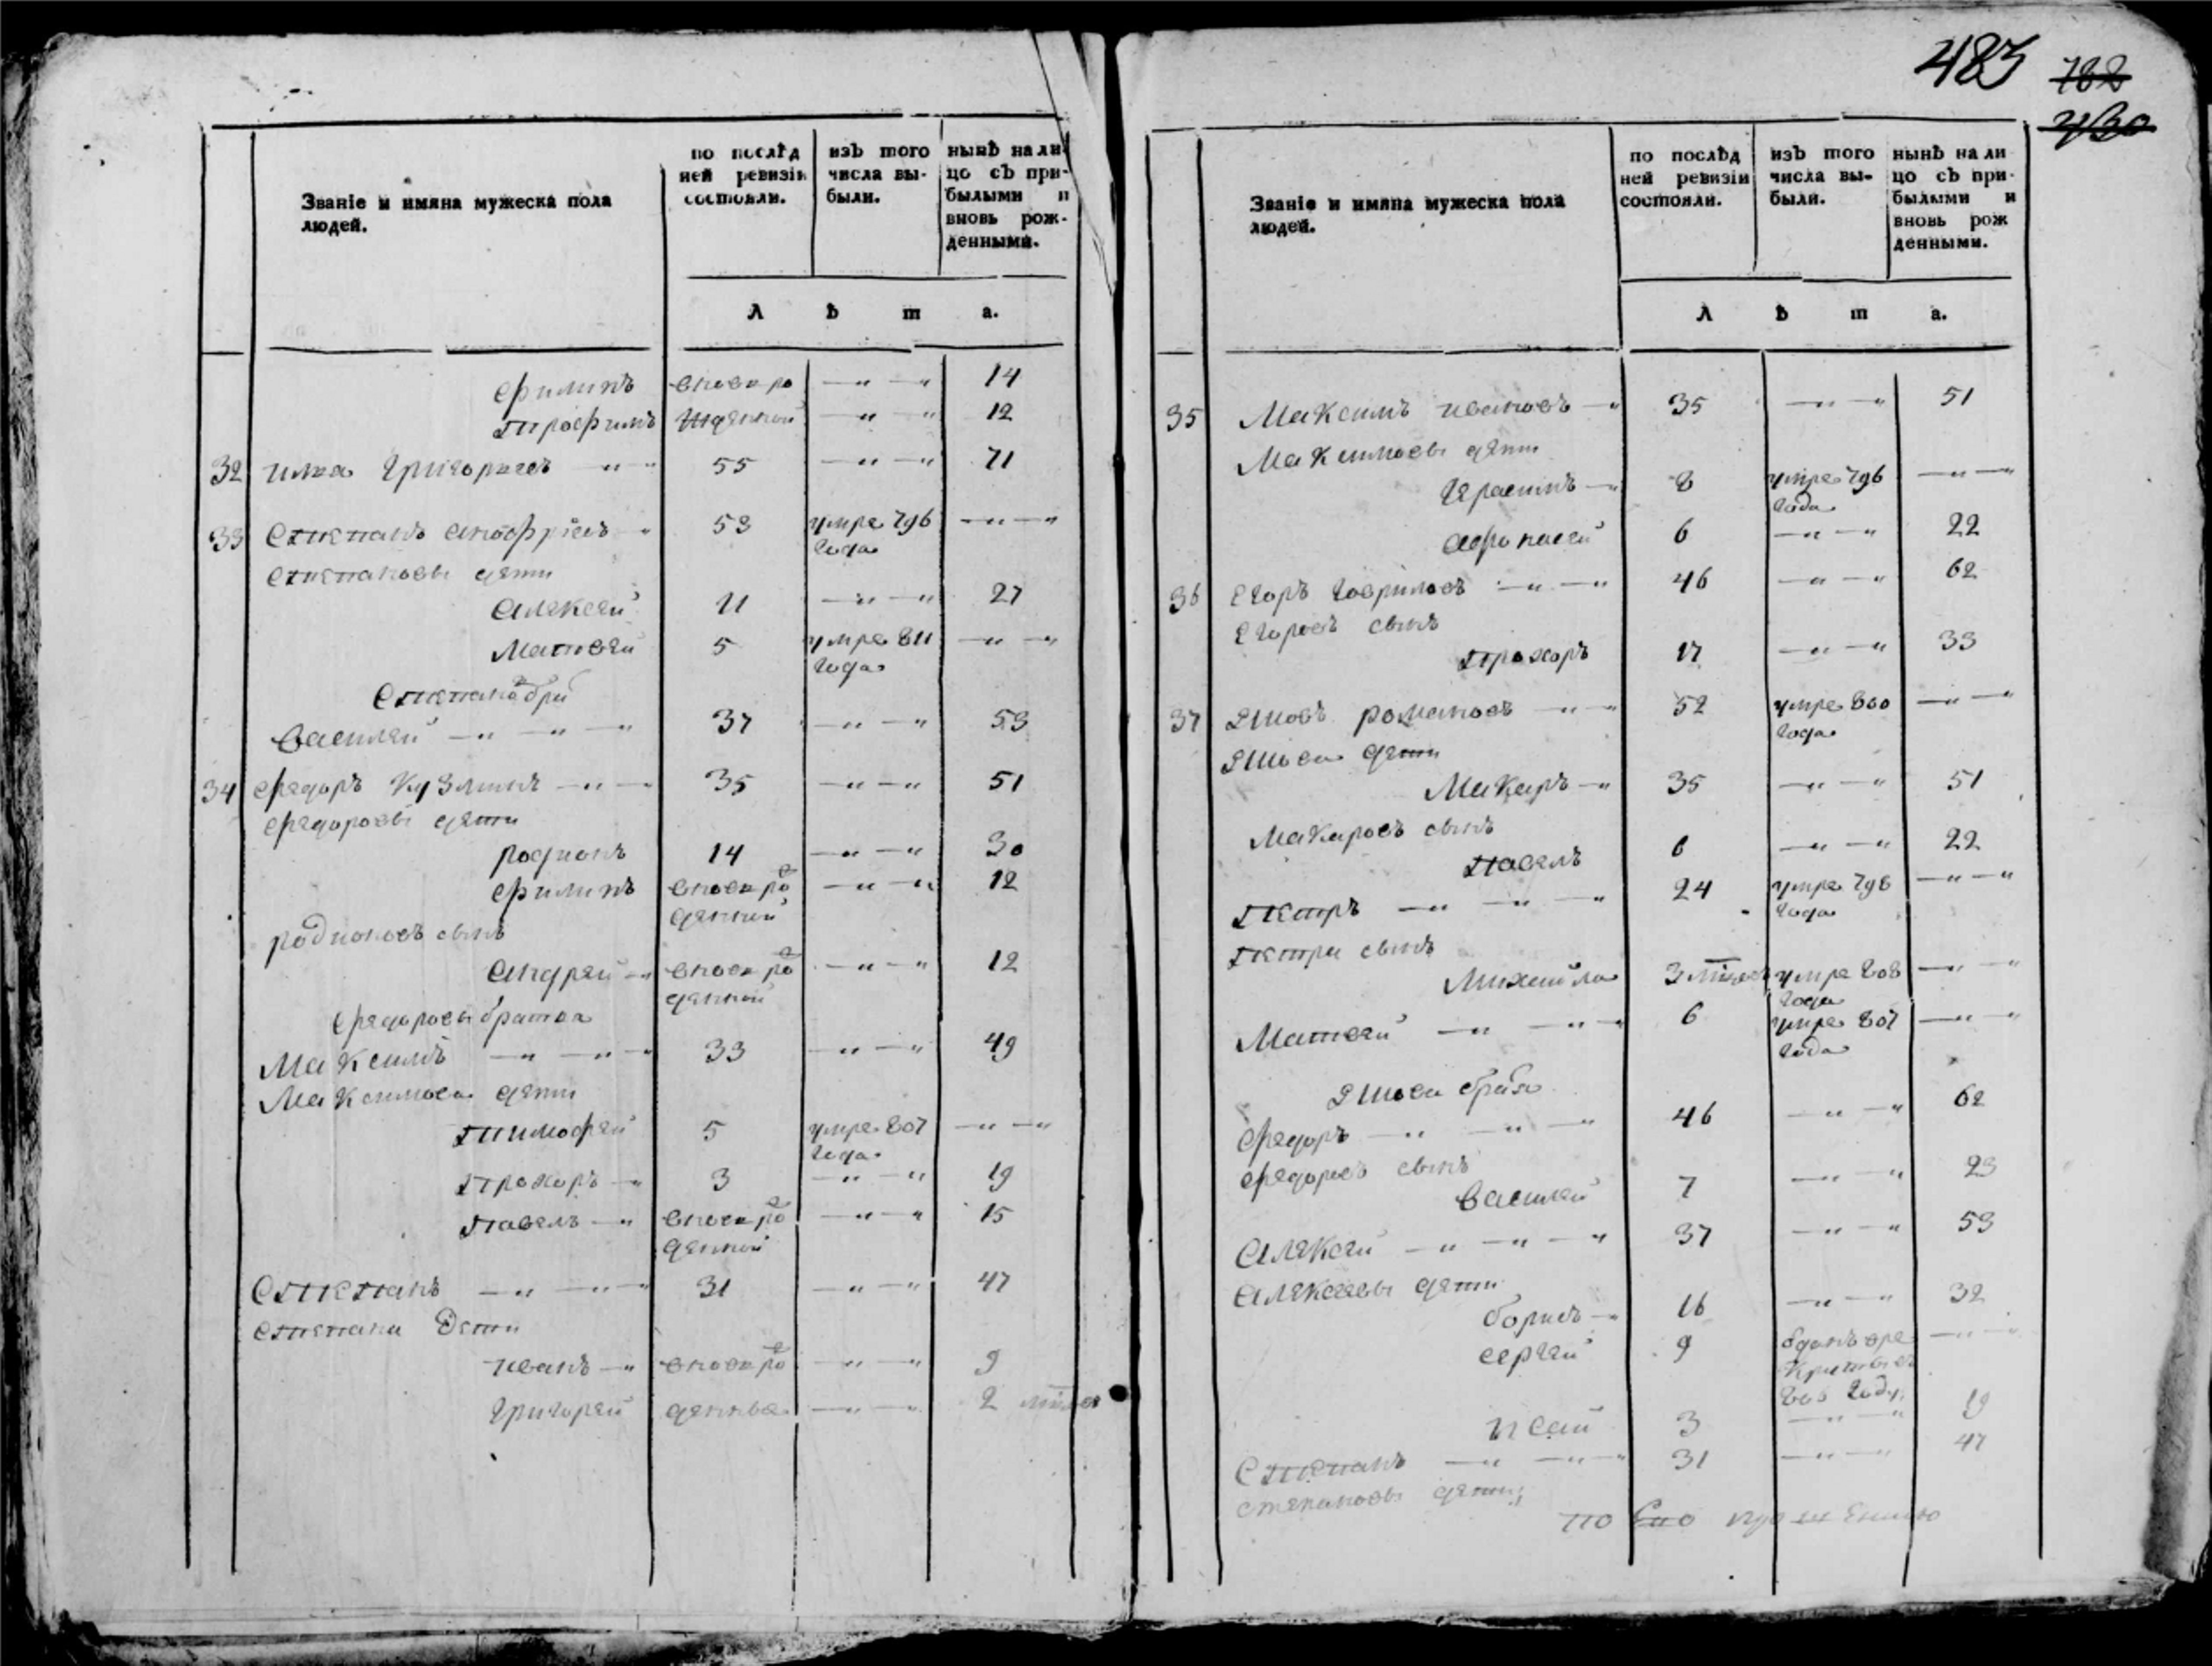 483
788
Званіе и имяна мужеска пола людей.
по послѣд ней ревизіи состояли.
изъ того числа вы- были.
нынѣ на ли цо съ при- былыми и вновь рож- денными.
л ѣ т а.
Филипъ вновь ро 14
Трофимъ жденной 12
32 Илья Григорьевъ 55 71
33 Степанъ 53 умре 796 года
Степановы дети
Алексей 11 27
Матвей 5 умре 811 года
Степана бра
Василей 37 53
34 Федоръ Кузминъ 35 51
Федоровы дети
Родионъ 14 30
Филипъ вновь ро 12
денной
Родионовъ сынъ
Андрей вновь ро 12
денной
Федоровы братья
Максимъ 33 49
Максимова дети
Тимофей 5 умре 807 года
Прохоръ 3 19
Павелъ вновь ро 15
денной
Степанъ 31 47
Степана дети
Иванъ вновь ро 9
Григорей денные 2
Званіе и имяна мужеска пола людей.
по послѣд ней ревизіи состояли.
изъ того числа вы- были.
нынѣ на ли цо съ при- былыми и вновь рож денными.
л ѣ т а.
35 Максимъ Ивановъ 35 51
Максимовы дети
Герасимъ 8 умре 796 года
Афонасей 6 22
36 Егоръ Гавриловъ 46 62
Егоровъ сынъ
Прохоръ 17 33
37 Романовъ 52 умре 800 года
дети
Макаръ 35 51
Макаровъ сынъ
Павелъ 6 22
Петръ 24 умре 798 года
Петра сынъ
Михайла 3 умре 808 года
Матвей 6 умре 807 года
Федоръ 46 62
Федоровъ сынъ
Василей 7 23
Алексей 37 53
Алексеевы дети
Борисъ 16 32
Сергей 9
году
Исай 3 19
Степанъ 31 47
Степановы дети